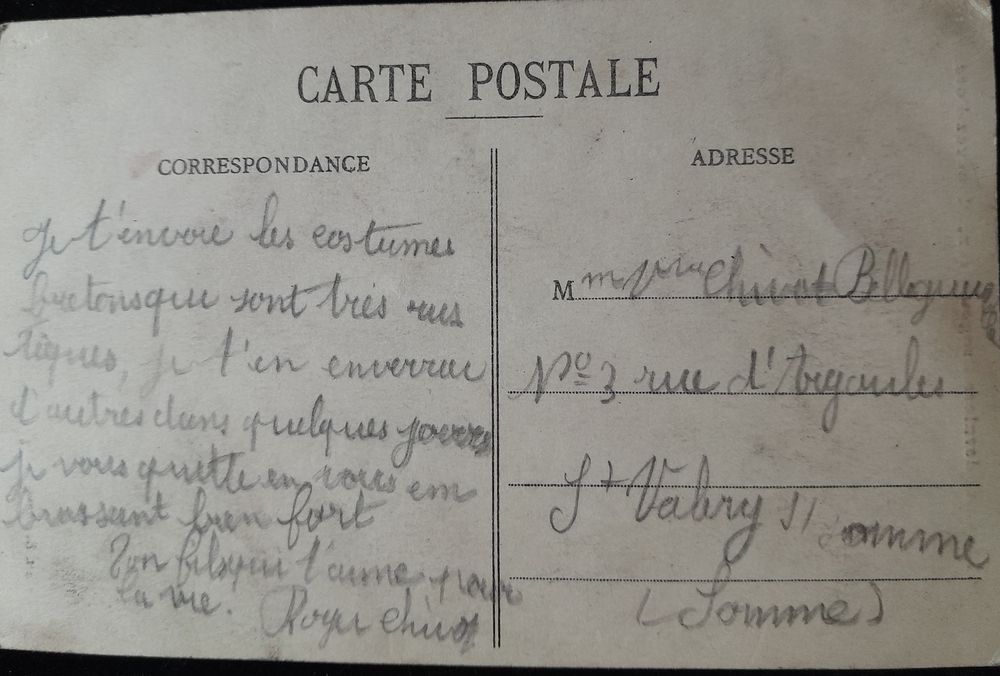 CARTE POSTALE
CORRESPONDANCE
ADRESSE
Je t'envoie les costumes
bretons qui sont très rus
tiques, je t'en enverrai
d'autres dans quelques jours
je vous quitte en vous em
brassant bien fort
Ton fils qui t'aime pour
la vie. Roger Chivot
Mme Vve Chivot
No 3 rue d'Argoules
St Valery s/ Somme
(Somme)